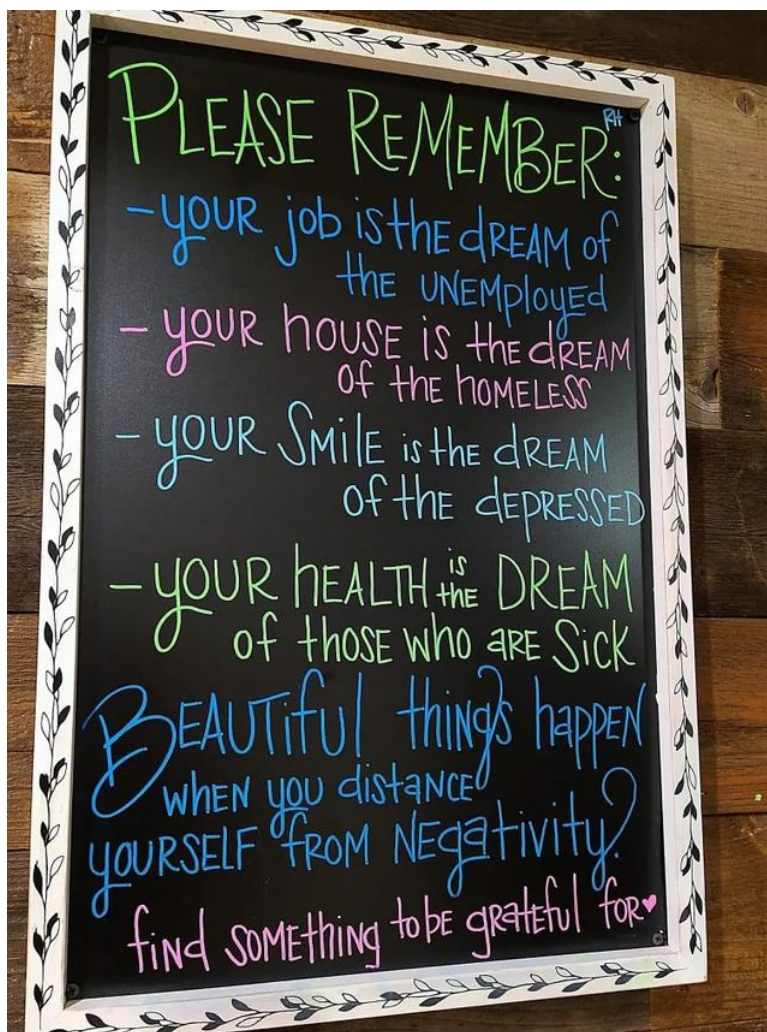 PLEASE REMEMBER:
RH
- YOUR job is the dREAM of
the UNEMployed
- YOUR hOUSE is the dREAM
of the hOMELESS
- YOUR SMiLE is the dREAM
of the dEPRESSED
- YOUR hEALTH is the DREAM
of thOSE who ARE SiCK
BEAUTifuL things happEN
WhEN you distANCE
yOURSELF fROM NEgativity.
find SOMEthiNg to be gRATEful foR♥